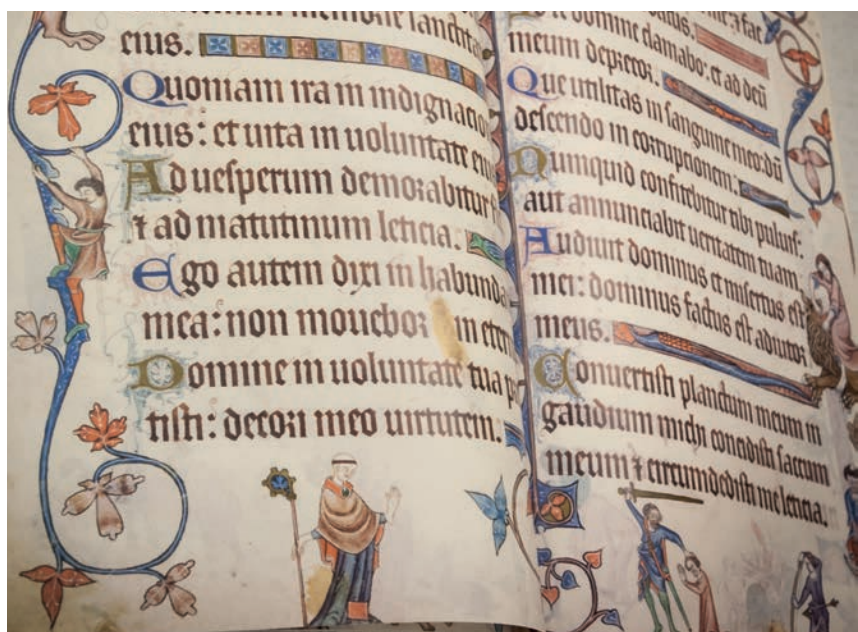 eius.
Quoniam ira in indignacio
eius: et uita in uoluntate
Ad uesperum demorabitur
⁊ ad matutinum leticia.
Ego autem dixi in habunda
mea: non mouebor in eter
Domine in uoluntate tua
titisti: decori meo uirtutem.
domine clamabo: et ad deū
meum deprecor.
Que utilitas in sanguine meo: dū
descendo in corrupcionem.
Numquid confitebitur tibi puluis:
aut annunciabit ueritatem tuam
Audiuit dominus et misertus est
mei: dominus factus est adiutor
meus.
Conuertisti planctum meum in
gaudium michi concidisti saccum
meum ⁊ circumdedisti me leticia.